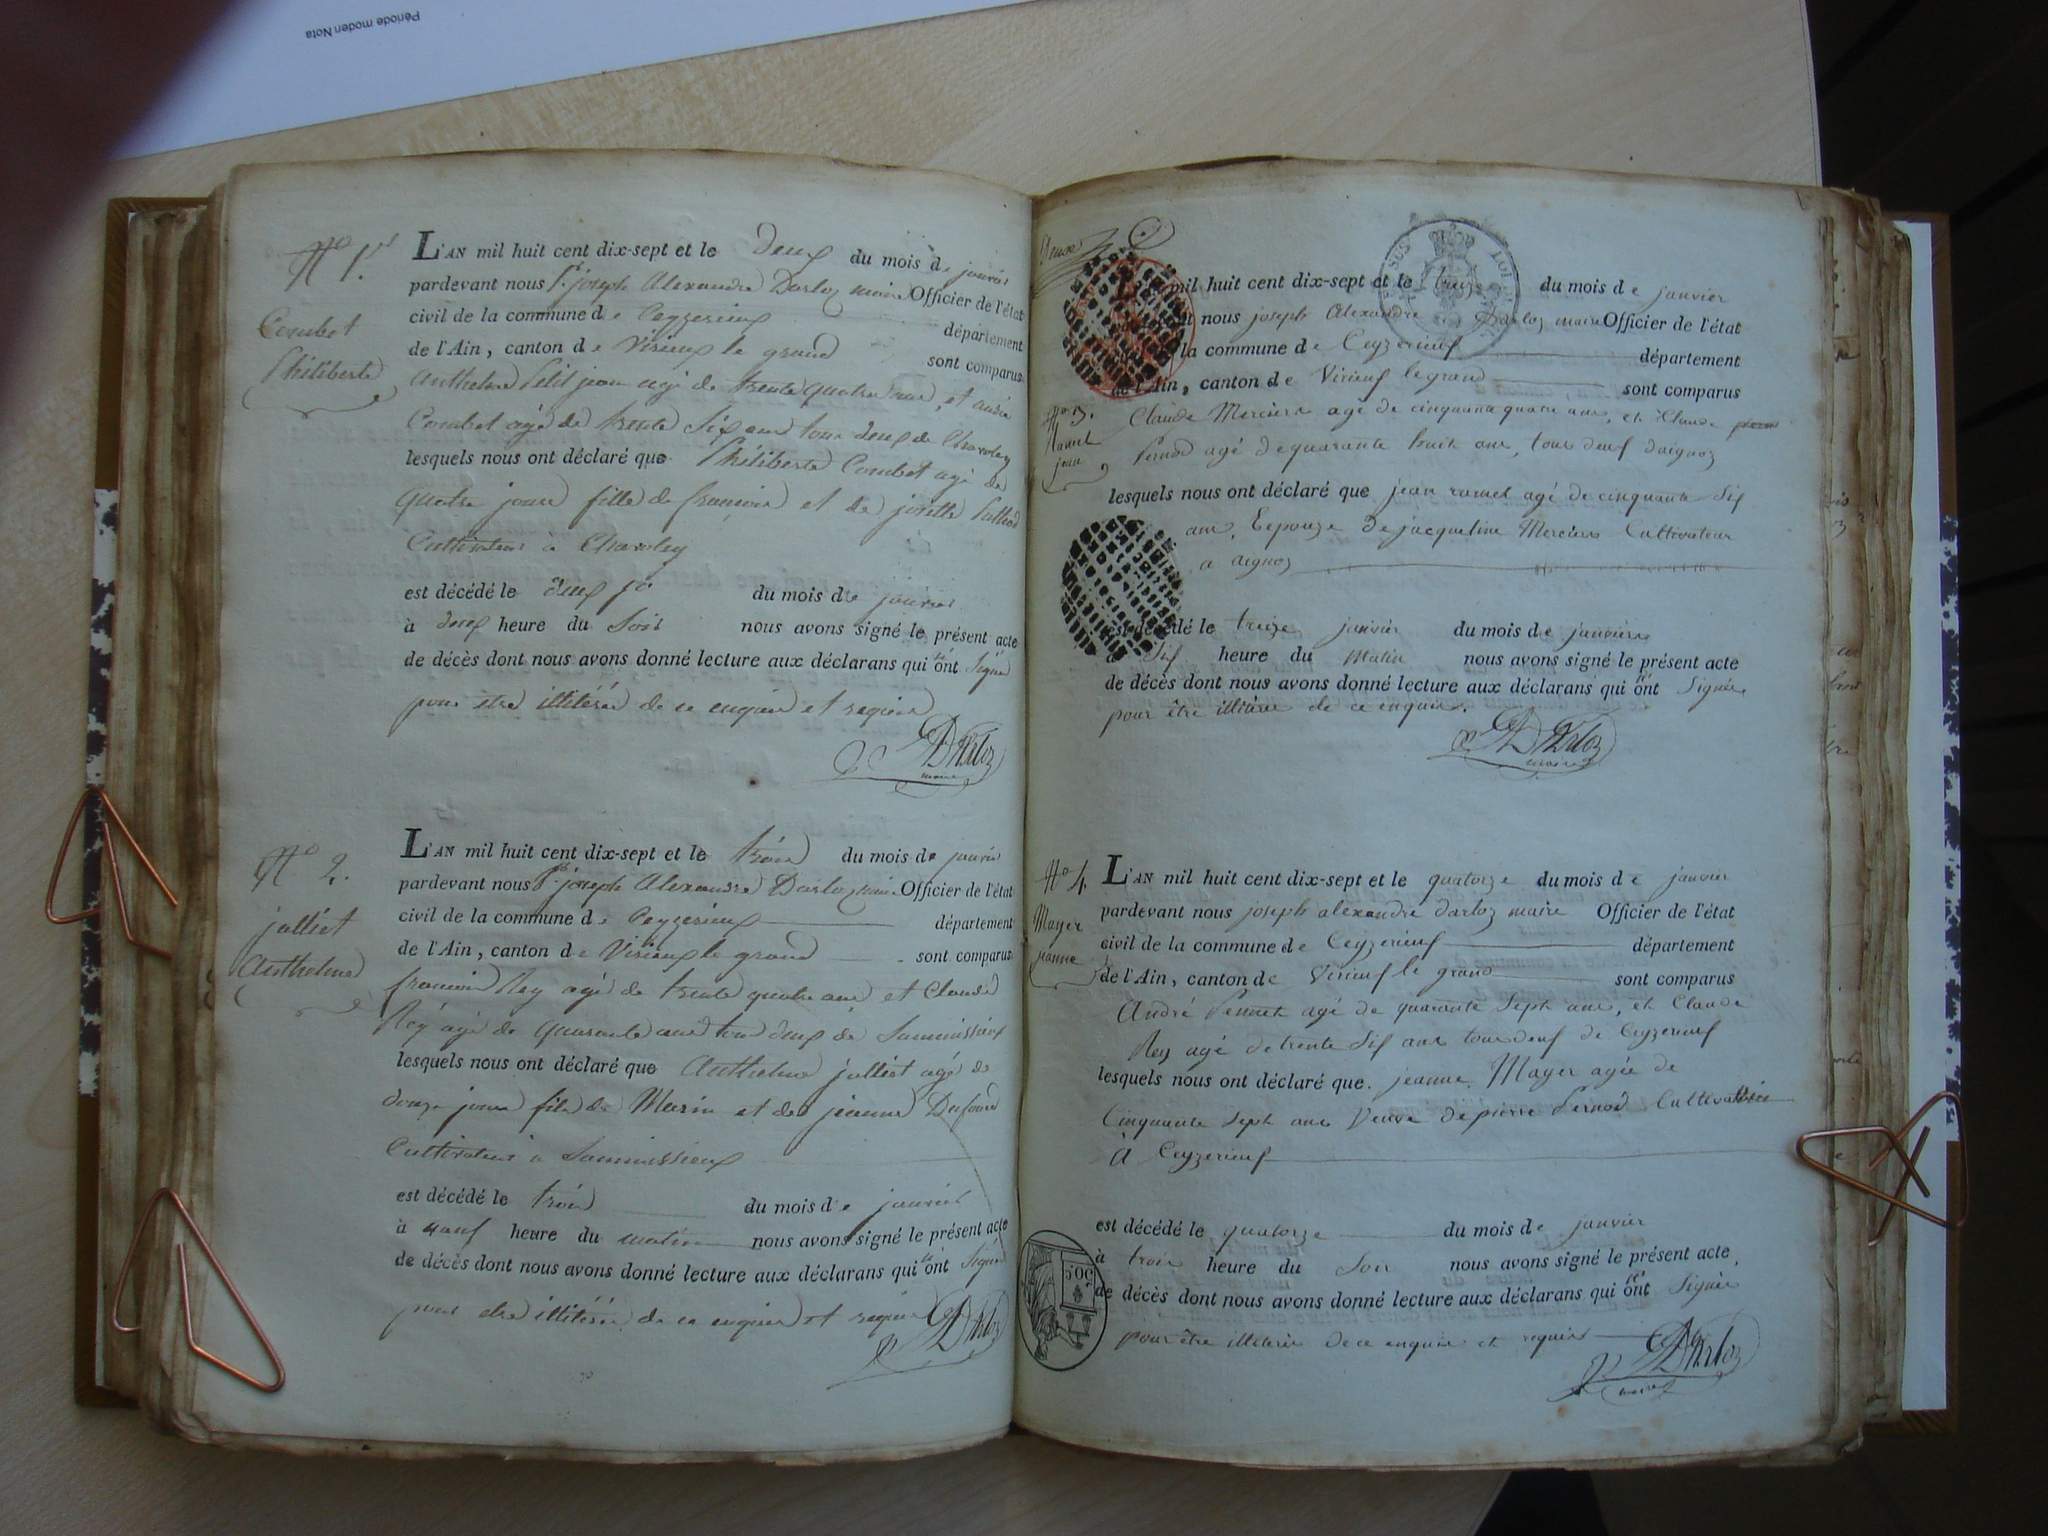 Période moden Nota
N° 1.er
Combet
Philiberte
L'AN mil huit cent dix-sept et le deux du mois de janvier
pardevant nous Pr. joseph Alexandre Darloz maire Officier de l'état
civil de la commune de Ceyzerieux département
de l'Ain, canton de Virieux le grand sont comparus
Anthelme Petit jean agé de trente quatre ans, et
Combet agé de trente six ans tous deux de Chavoley
lesquels nous ont déclaré que Philiberte Combet agé de
quatre jours fille de francois et de josette
Cultivateur à Chavoley
est décédé le deux du mois de janvier
à deux heure du Soir nous avons signé le présent acte
de décès dont nous avons donné lecture aux déclarans qui n'ont Signé
pour etre illitérés de ce enquis et requis
Darloz
maire
N° 2.
julliet
Anthelme
L'AN mil huit cent dix-sept et le trois du mois de janvier
pardevant nous Pr. joseph Alexandre Darloz maire Officier de l'état
civil de la commune de Ceyzerieux département
de l'Ain, canton de Virieux le grand sont comparus
francois Rey agé de trente quatre ans et Claude
Rey agé de quarante ans tous deux de Sammissieux
lesquels nous ont déclaré que Anthelme julliet agé de
douze jours fils de Marin et de jeanne Dufour
Cultivateur à Sammissieux
est décédé le trois du mois de janvier
à neuf heure du matin nous avons signé le présent acte
de décès dont nous avons donné lecture aux déclarans qui n'ont Signé
pour etre illitérés de ce enquis et requis
Darloz
Deuxe
mil huit cent dix-sept et le treize du mois de janvier
nous joseph Alexandre Darloz maire Officier de l'état
la commune de Ceyzerieuf département
de l'Ain, canton de Virieuf le grand sont comparus
N° 3.
Ramel
jean
Claude Merciere agé de cinquante quatre ans, et Claude
Pernod agé de quarante huit ans, tous deuf daignoz
lesquels nous ont déclaré que jean ramel agé de cinquante Sif
ans, Epouze de jacqueline Merciere Cultivateur
a aignoz
est décédé le treize janvier du mois de janvier
à Sif heure du Matin nous avons signé le présent acte
de décès dont nous avons donné lecture aux déclarans qui n'ont Signés
pour être illitérés de ce enquis.
Darloz
maire
N° 4.
Mayer
jeanne
L'AN mil huit cent dix-sept et le quatorze du mois de janvier
pardevant nous joseph alexandre darloz maire Officier de l'état
civil de la commune de Ceyzerieuf département
de l'Ain, canton de Virieuf le grand sont comparus
André Perret agé de quarante Sept ans, et Claude
Rey agé de trente Sif ans tous deuf de Ceyzerieuf
lesquels nous ont déclaré que jeanne Mayer agée de
Cinquante Sept ans Veuve de pierre Pernod Cultivatrice
à Ceyzerieuf
est décédé le quatorze du mois de janvier
à trois heure du Soir nous avons signé le présent acte
de décès dont nous avons donné lecture aux déclarans qui n'ont Signés
pour être illitérés de ce enquis et requis
50C
Darloz
maire